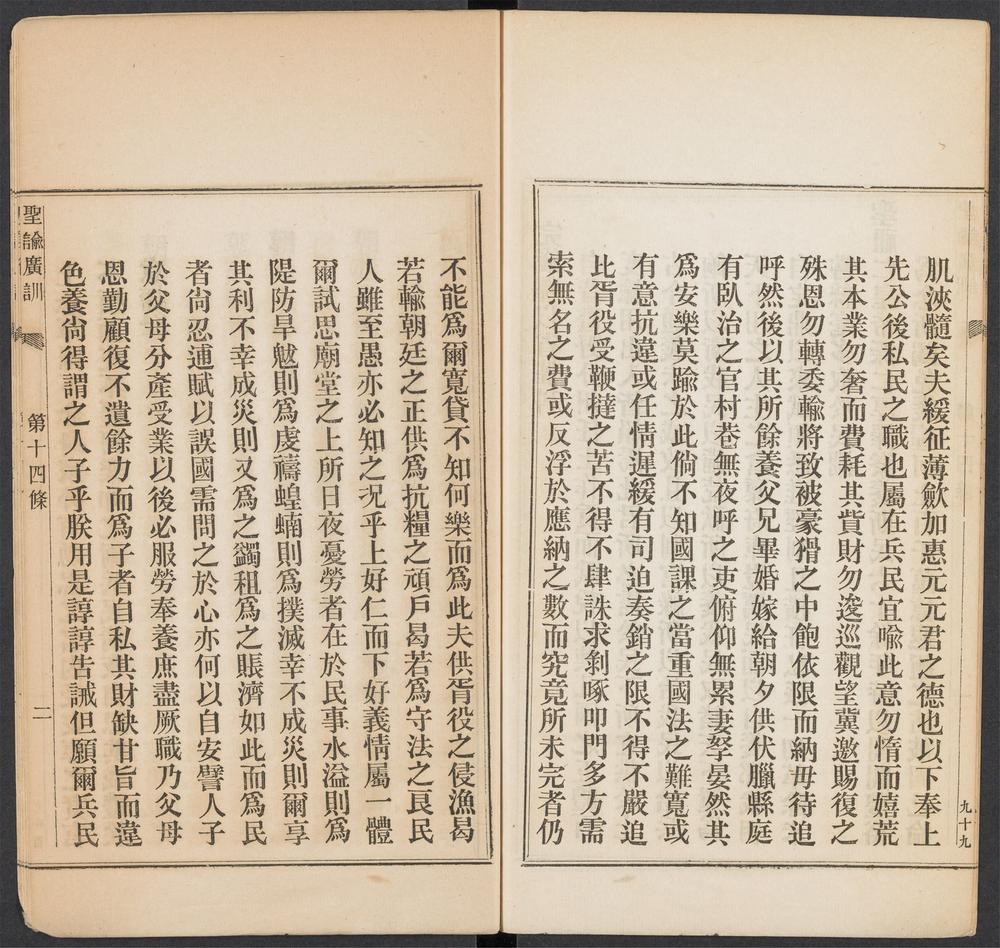 肌浹髓矣夫緩征薄歛加惠元元君之德也以下奉上
先公後私民之職也屬在兵民宜喩此意勿惰而嬉荒
其本業勿奢而費耗其貲財勿逡巡觀望冀邀賜復之
殊恩勿轉委輸將致被豪猾之中飽依限而納毋待追
呼然後以其所餘養父兄畢婚嫁給朝夕供伏臘縣庭
有臥治之官村巷無夜呼之吏俯仰無累妻孥晏然其
爲安樂莫踰於此倘不知國課之當重國法之難寬或
有意抗違或任情遲緩有司迫奏銷之限不得不嚴追
比胥役受鞭撻之苦不得不肆誅求剝啄叩門多方需
索無名之費或反浮於應納之數而究竟所未完者仍
九十九
不能爲爾寬貸不知何樂而爲此夫供胥役之侵漁曷
若輸朝廷之正供爲抗糧之頑戶曷若爲守法之良民
人雖至愚亦必知之況乎上好仁而下好義情屬一體
爾試思廟堂之上所日夜憂勞者在於民事水溢則爲
隄防旱魃則爲虔禱蝗蝻則爲撲滅幸不成災則爾享
其利不幸成災則又爲之蠲租爲之賑濟如此而爲民
者尙忍逋賦以誤國需問之於心亦何以自安譬人子
於父母分產受業以後必服勞奉養庶盡厥職乃父母
恩勤顧復不遺餘力而爲子者自私其財缺甘旨而違
色養尙得謂之人子乎朕用是諄諄吿誡但願爾兵民
聖諭廣訓
第十四條
二